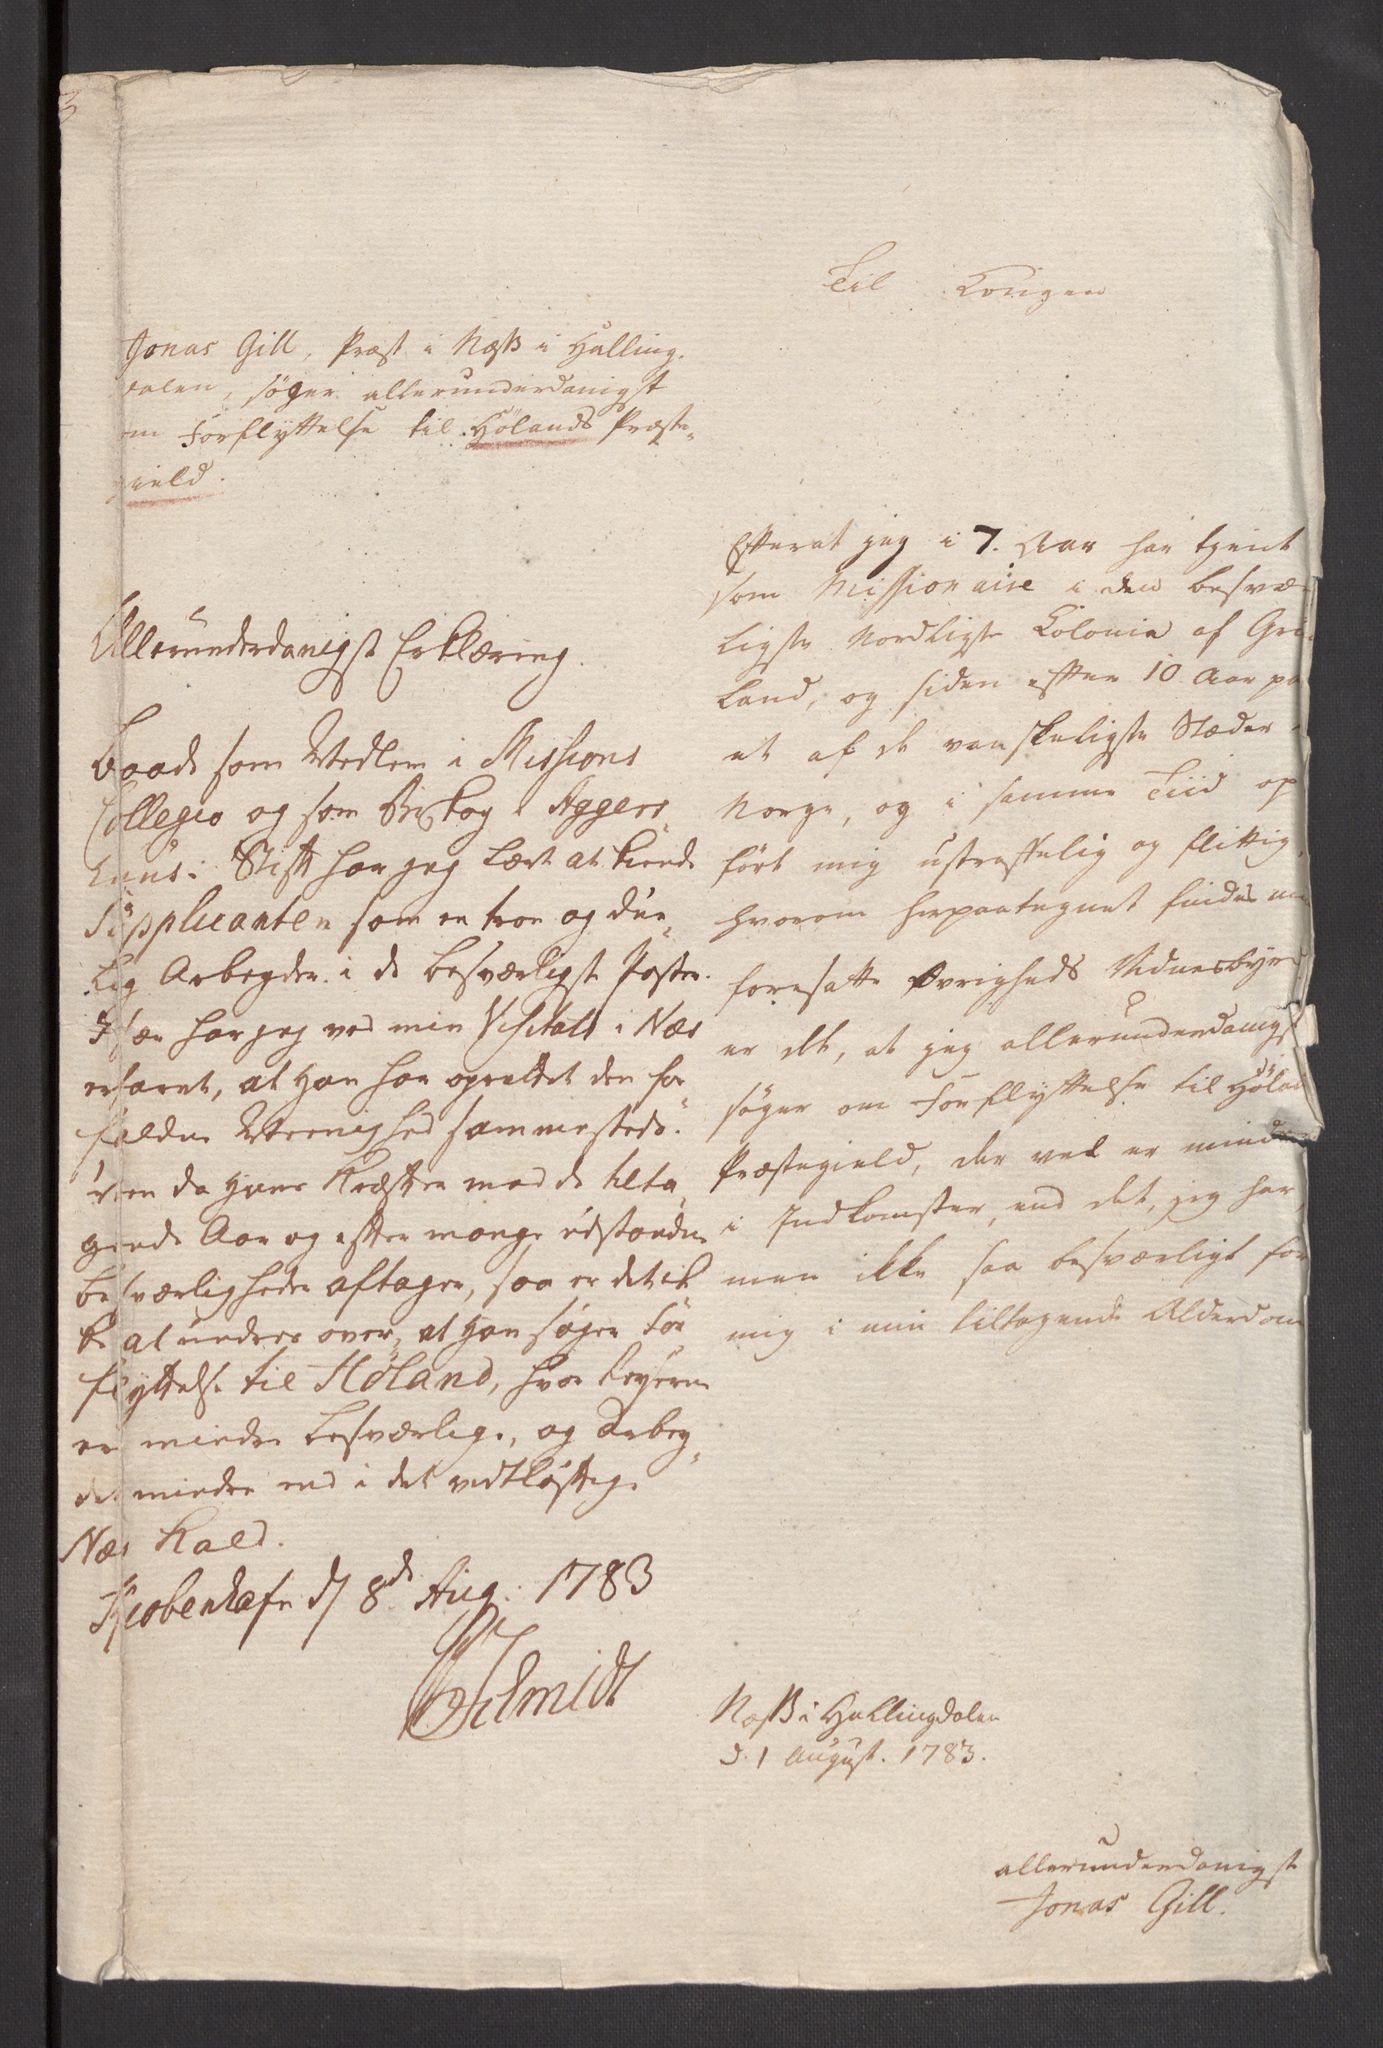 Til Kongen
Jonas Gill, Præst i Næss i Halling-
dalen, søger allerunderdanigst
om Forflyttelse til Hølands Præste-
gield.
Efterat jeg i 7. Aar har tient
som Missionaire i den besvær
ligste Nordligste Colonie af Grø
land, og siden efter 10 Aar paa
et af de vanskeligste Stæder i
Norge, og i samme Tiid op
ført mig ustraffelig og flittig,
hvorom herpaategnet findes
foresatte Øvrigheds Vidnesbyrd
er det, at jeg allerunderdanigst
søger om Forflyttelse til Hølands
Præstegield, der vel er mindre
i Indkomster, end det, jeg har,
men ikke saa besværligt for
mig i min tiltagende Alderdom
Næss i Hallingdalen
d. 1 August. 1783.
allerunderdanigst
Jonas Gill.
Allerunderdanigst Erklæring.
Baade som Medlem i Missions
Collegio og som Biskop i Aggers-
huus: Stift har jeg lært at kiende
Supplicanten som en troe og due-
lig Arbeyder i de besværligste Poster.
Især har jeg ved min Visitats i Næs
erfaret, at han har oprettet den for
faldne Meenighed sammesteds.
Men da hans Kræfter med de tilta-
gende Aar og efter mange udstandne
besværligheder aftager, saa er det ik
ke at undres over, at han søger For
flyttelse til Høland, hvor Reyserne
er mindre besværlige, og Arbey-
det mindre end i det vidtløftige
Næs Kald.
Kiøbenhafn d 8de Aug: 1783
Schmidt